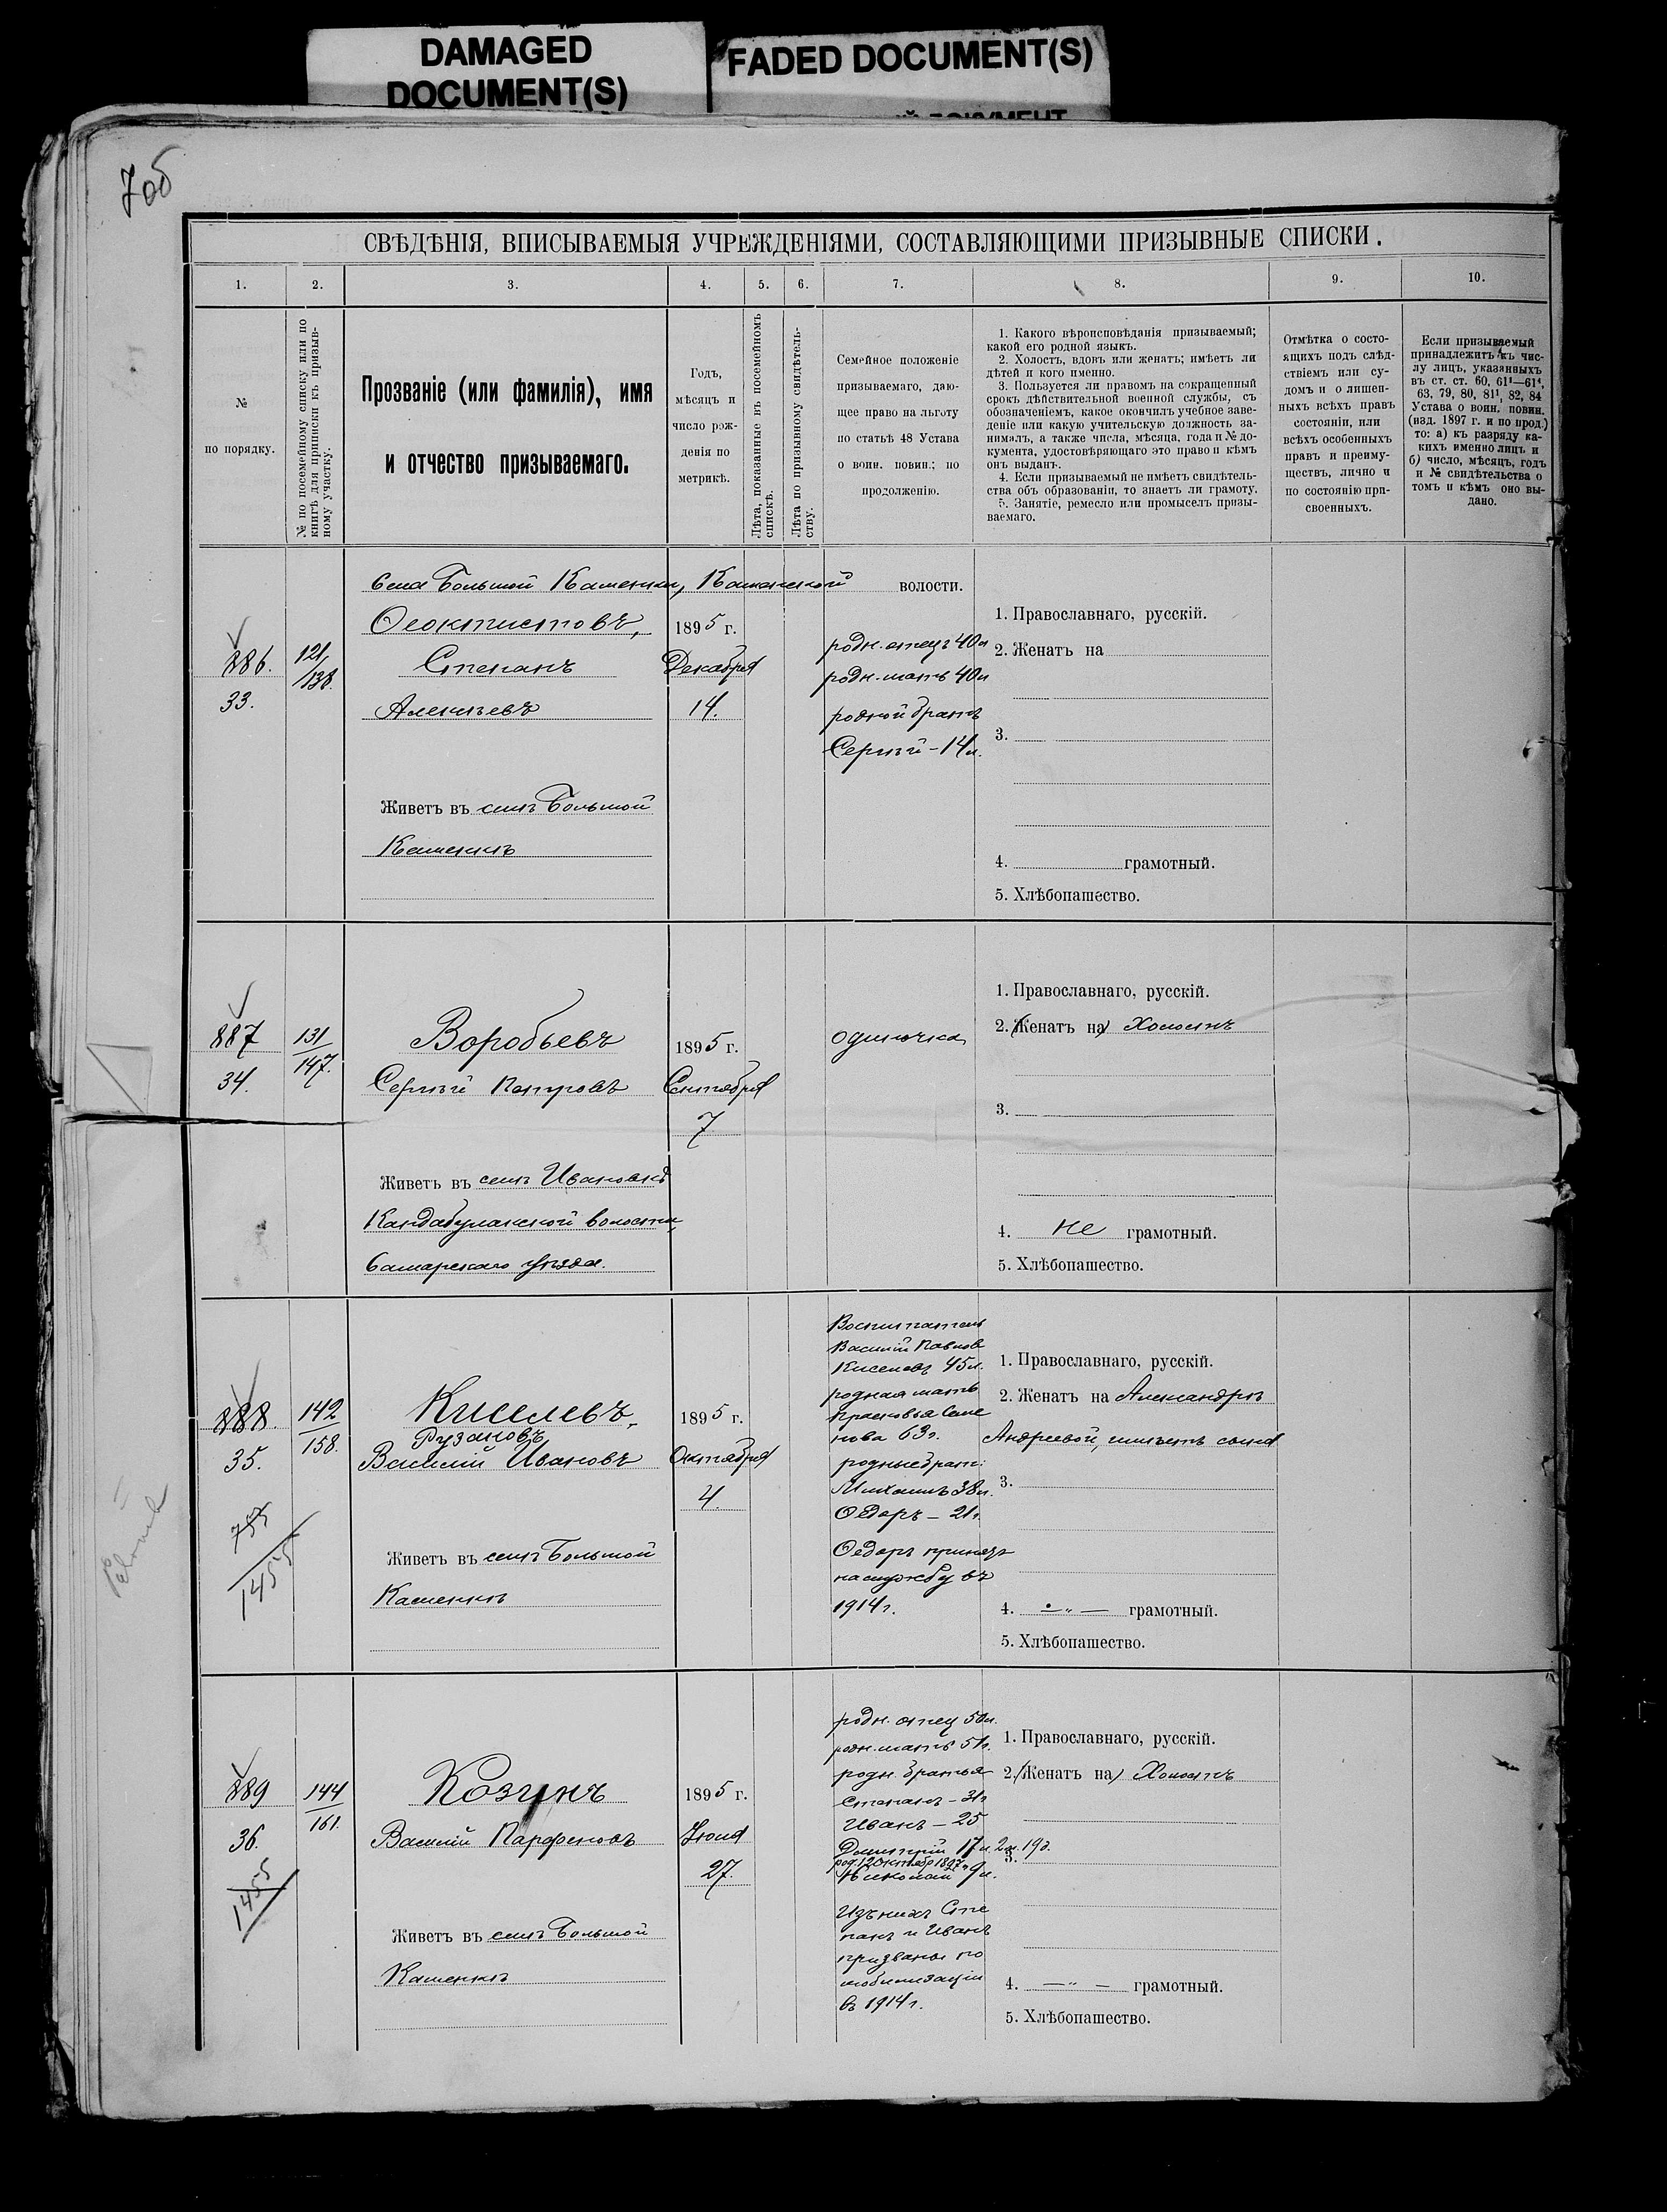 DAMAGED
DOCUMENT(S)
FADED DOCUMENT(S)
7об
СВѢДѢНІЯ, ВПИСЫВАЕМЫЯ УЧРЕЖДЕНІЯМИ, СОСТАВЛЯЮЩИМИ ПРИЗЫВНЫЕ СПИСКИ.
1. 2. 3. 4. 5. 6. 7. 8. 9. 10.
№
по порядку.
№ по посемейному списку или по
книгѣ для приписки къ призыв-
ному участку.
Прозваніе (или фамилія), имя
и отчество призываемаго.
Годъ,
мѣсяцъ и
число рож-
денія по
метрикѣ.
Лѣта, показанные въ посемейномъ
спискѣ.
Лѣта по призывному свидѣтель-
ству.
Семейное положеніе
призываемаго, даю-
щее право на льготу
по статьѣ 48 Устава
о воин. повин.; по
продолженію.
1. Какого вѣроисповѣданія призываемый;
какой его родной языкъ.
2. Холостъ, вдовъ или женатъ; имѣетъ ли
дѣтей и кого именно.
3. Пользуется ли правомъ на сокращенный
срокъ дѣйствительной военной службы, съ
обозначеніемъ, какое окончилъ учебное заве-
деніе или какую учительскую должность за-
нималъ, а также числа, мѣсяца, года и № до-
кумента, удостовѣряющаго это право и кѣмъ
онъ выданъ.
4. Если призываемый не имѣетъ свидѣтель-
ства объ образованіи, то знаетъ ли грамоту.
5. Занятіе, ремесло или промыселъ призы-
ваемаго.
Отмѣтка о состо-
ящихъ подъ слѣд-
ствіемъ или су-
домъ и о лишен-
ныхъ всѣхъ правъ
состоянія, или
всѣхъ особенныхъ
правъ и преиму-
ществъ, лично и
по состоянію при-
своенныхъ.
Если призываемый
принадлежитъ къ чис-
лу лицъ, указанныхъ
въ ст. ст. 60, 61¹—61⁴,
63, 79, 80, 81¹, 82, 84
Устава о воин. повин.
(изд. 1897 г. и по прод.)
то: а) къ разряду ка-
кихъ именно лицъ и
б) число, мѣсяцъ, годъ
и № свидѣтельства о
томъ и кѣмъ оно вы-
дано.
Села Большой Каменки, Каменской волости.
886.
33.
121/138.
Ѳеоктистовъ,
Степанъ
Алексѣевъ
Живетъ въ селѣ Большой
Каменкѣ
1895 г.
Декабря
14.
родн. отецъ 40л
родн. мать 40л
родной братъ
Сергѣй - 14л.
1. Православнаго, русскій.
2. Женатъ на
3.
4. грамотный.
5. Хлѣбопашество.
887
34.
131
147.
Воробьевъ
Сергѣй Петровъ
Живетъ въ селѣ Ивановкѣ
Кандабулакской волости,
Самарскаго уѣзда.
1895 г.
Сентября
7
одиночка
1. Православнаго, русскій.
2. (Женатъ на) Холостъ
3.
4. не грамотный.
5. Хлѣбопашество.
888.
35.
755
1455
142
158.
Киселевъ,
Рузановъ
Василій Ивановъ
Живетъ въ селѣ Большой
Каменкѣ
1895 г.
Октября
4.
Воспитатель
Василій Павлов
Киселевъ 45л.
родная мать
Прасковья Семе
нова 63г.
родные брат:
Михаилъ 38л.
Ѳедоръ — 21г.
Ѳедоръ принятъ
на службу въ
1914г.
1. Православнаго, русскій.
2. Женатъ на Александрѣ
Андреевой, имѣетъ сына
3.
4. — „ — грамотный.
5. Хлѣбопашество.
889
36.
1455
144
161.
Козинъ
Василій Парфеновъ
Живетъ въ селѣ Большой
Каменкѣ
1895 г.
Іюля
27.
родн. отец 50л.
родн. мать 51г.
родн. братья
Степанъ - 31г
Иванъ — 25
Дмитрій 17л. 2м. 19д.
род. 12 октябр 1897
Николай - 9л.
Изъ нихъ Сте
панъ и Иванъ
призваны по
мобилизаціи
въ 1914г.
1. Православнаго, русскій.
2. (Женатъ на) Холостъ
3.
4. — „ — грамотный.
5. Хлѣбопашество.